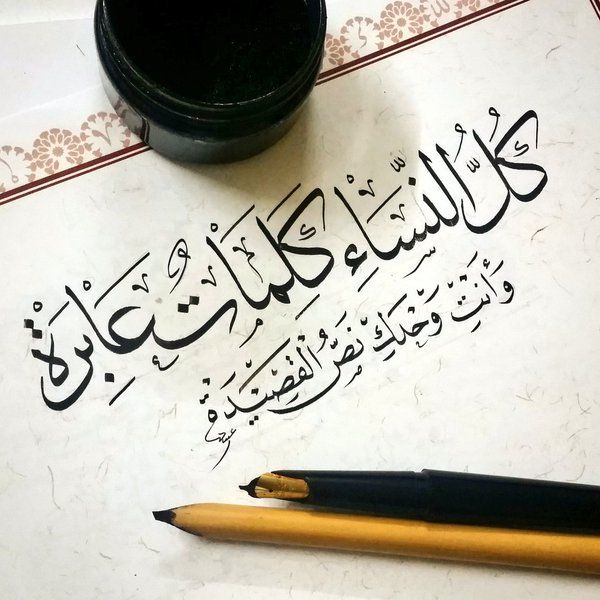 كُلُّ النِّسَاءِ كَلِمَاتٌ عَابِرَةْ
وَأَنْتِ وَحْدَكِ نَصُّ الْقَصِيْدَةْ